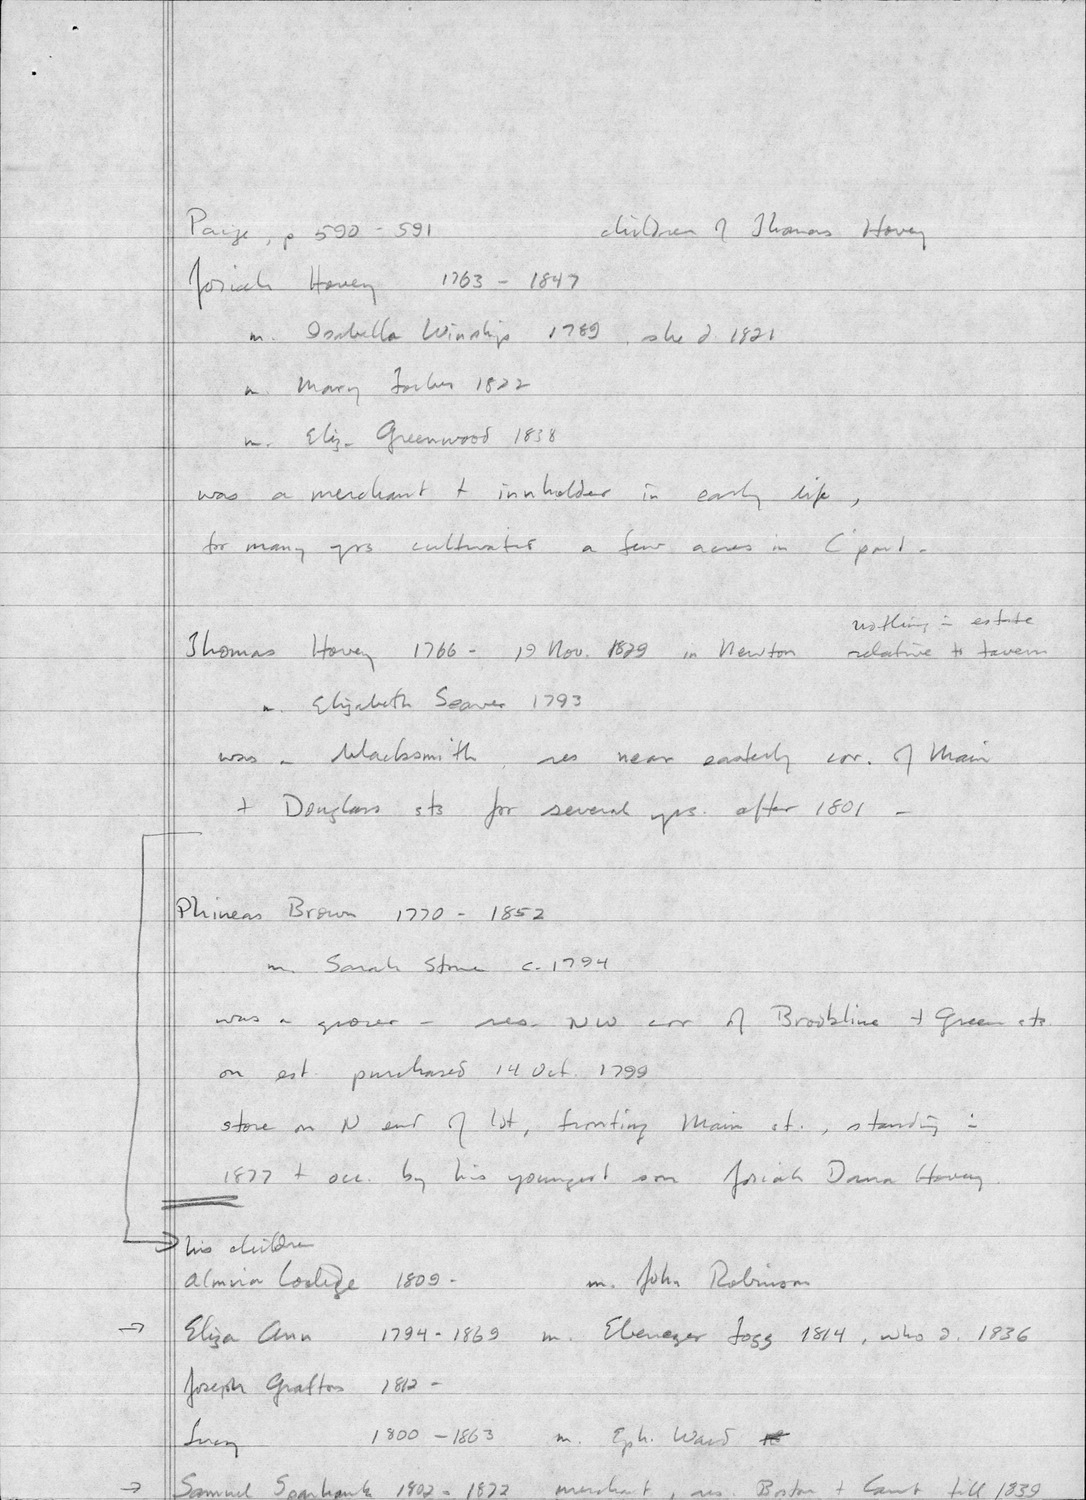 Paige, p 590 - 591 children of Thomas Hovey
Josiah Hovey 1763 - 1847
m. Isabella Winship 1789, she d. 1821
m. Mary 1822
m. Eliz. Greenwood 1838
was a merchant + innholder in early life,
for many yrs cultivated a few acres in C'port.
nothing in estate
Thomas Hovey 1766 - 19 Nov. 1829 in Newton relative to tavern
m. Elizabeth Seaver 1793
was a blacksmith, res near easterly cor. of Main
+ Douglass sts for several yrs. after 1801 -
Phineas Brown 1770 - 1852
m. Sarah Stone c. 1794
was a grocer - res. NW cor of Brookline + Green sts
on est. purchased 14 Oct. 1799
store on N end of lot, fronting Main st., standing in
1877 + occ. by his youngest son Josiah Dana Hovey.
his children
Almira 1809 - m. John Robinson
→ Eliza Ann 1794 - 1869 m. Ebenezer Fogg 1814, who d. 1836
Joseph Grafton 1812 -
Lucy 1800 - 1863 m. Eph. Ward
→ Samuel Sparhawk 1802 - 1872 merchant, res. Boston + Camb till 1839